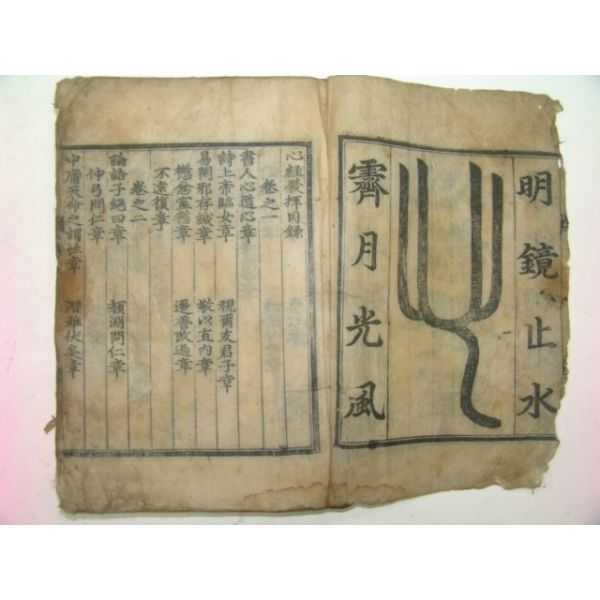 明鏡止水
心
霽月光風
心經發揮目錄
卷之一
書人心道心章
詩上帝臨女章 視爾友君子章
易閑邪存誠章 敬以直內章
懲忿窒慾章 遷善改過章
不遠復章
卷之二
論語子絶四章 顏淵問仁章
仲弓問仁章
中庸天命之謂性章 潛雖伏矣章